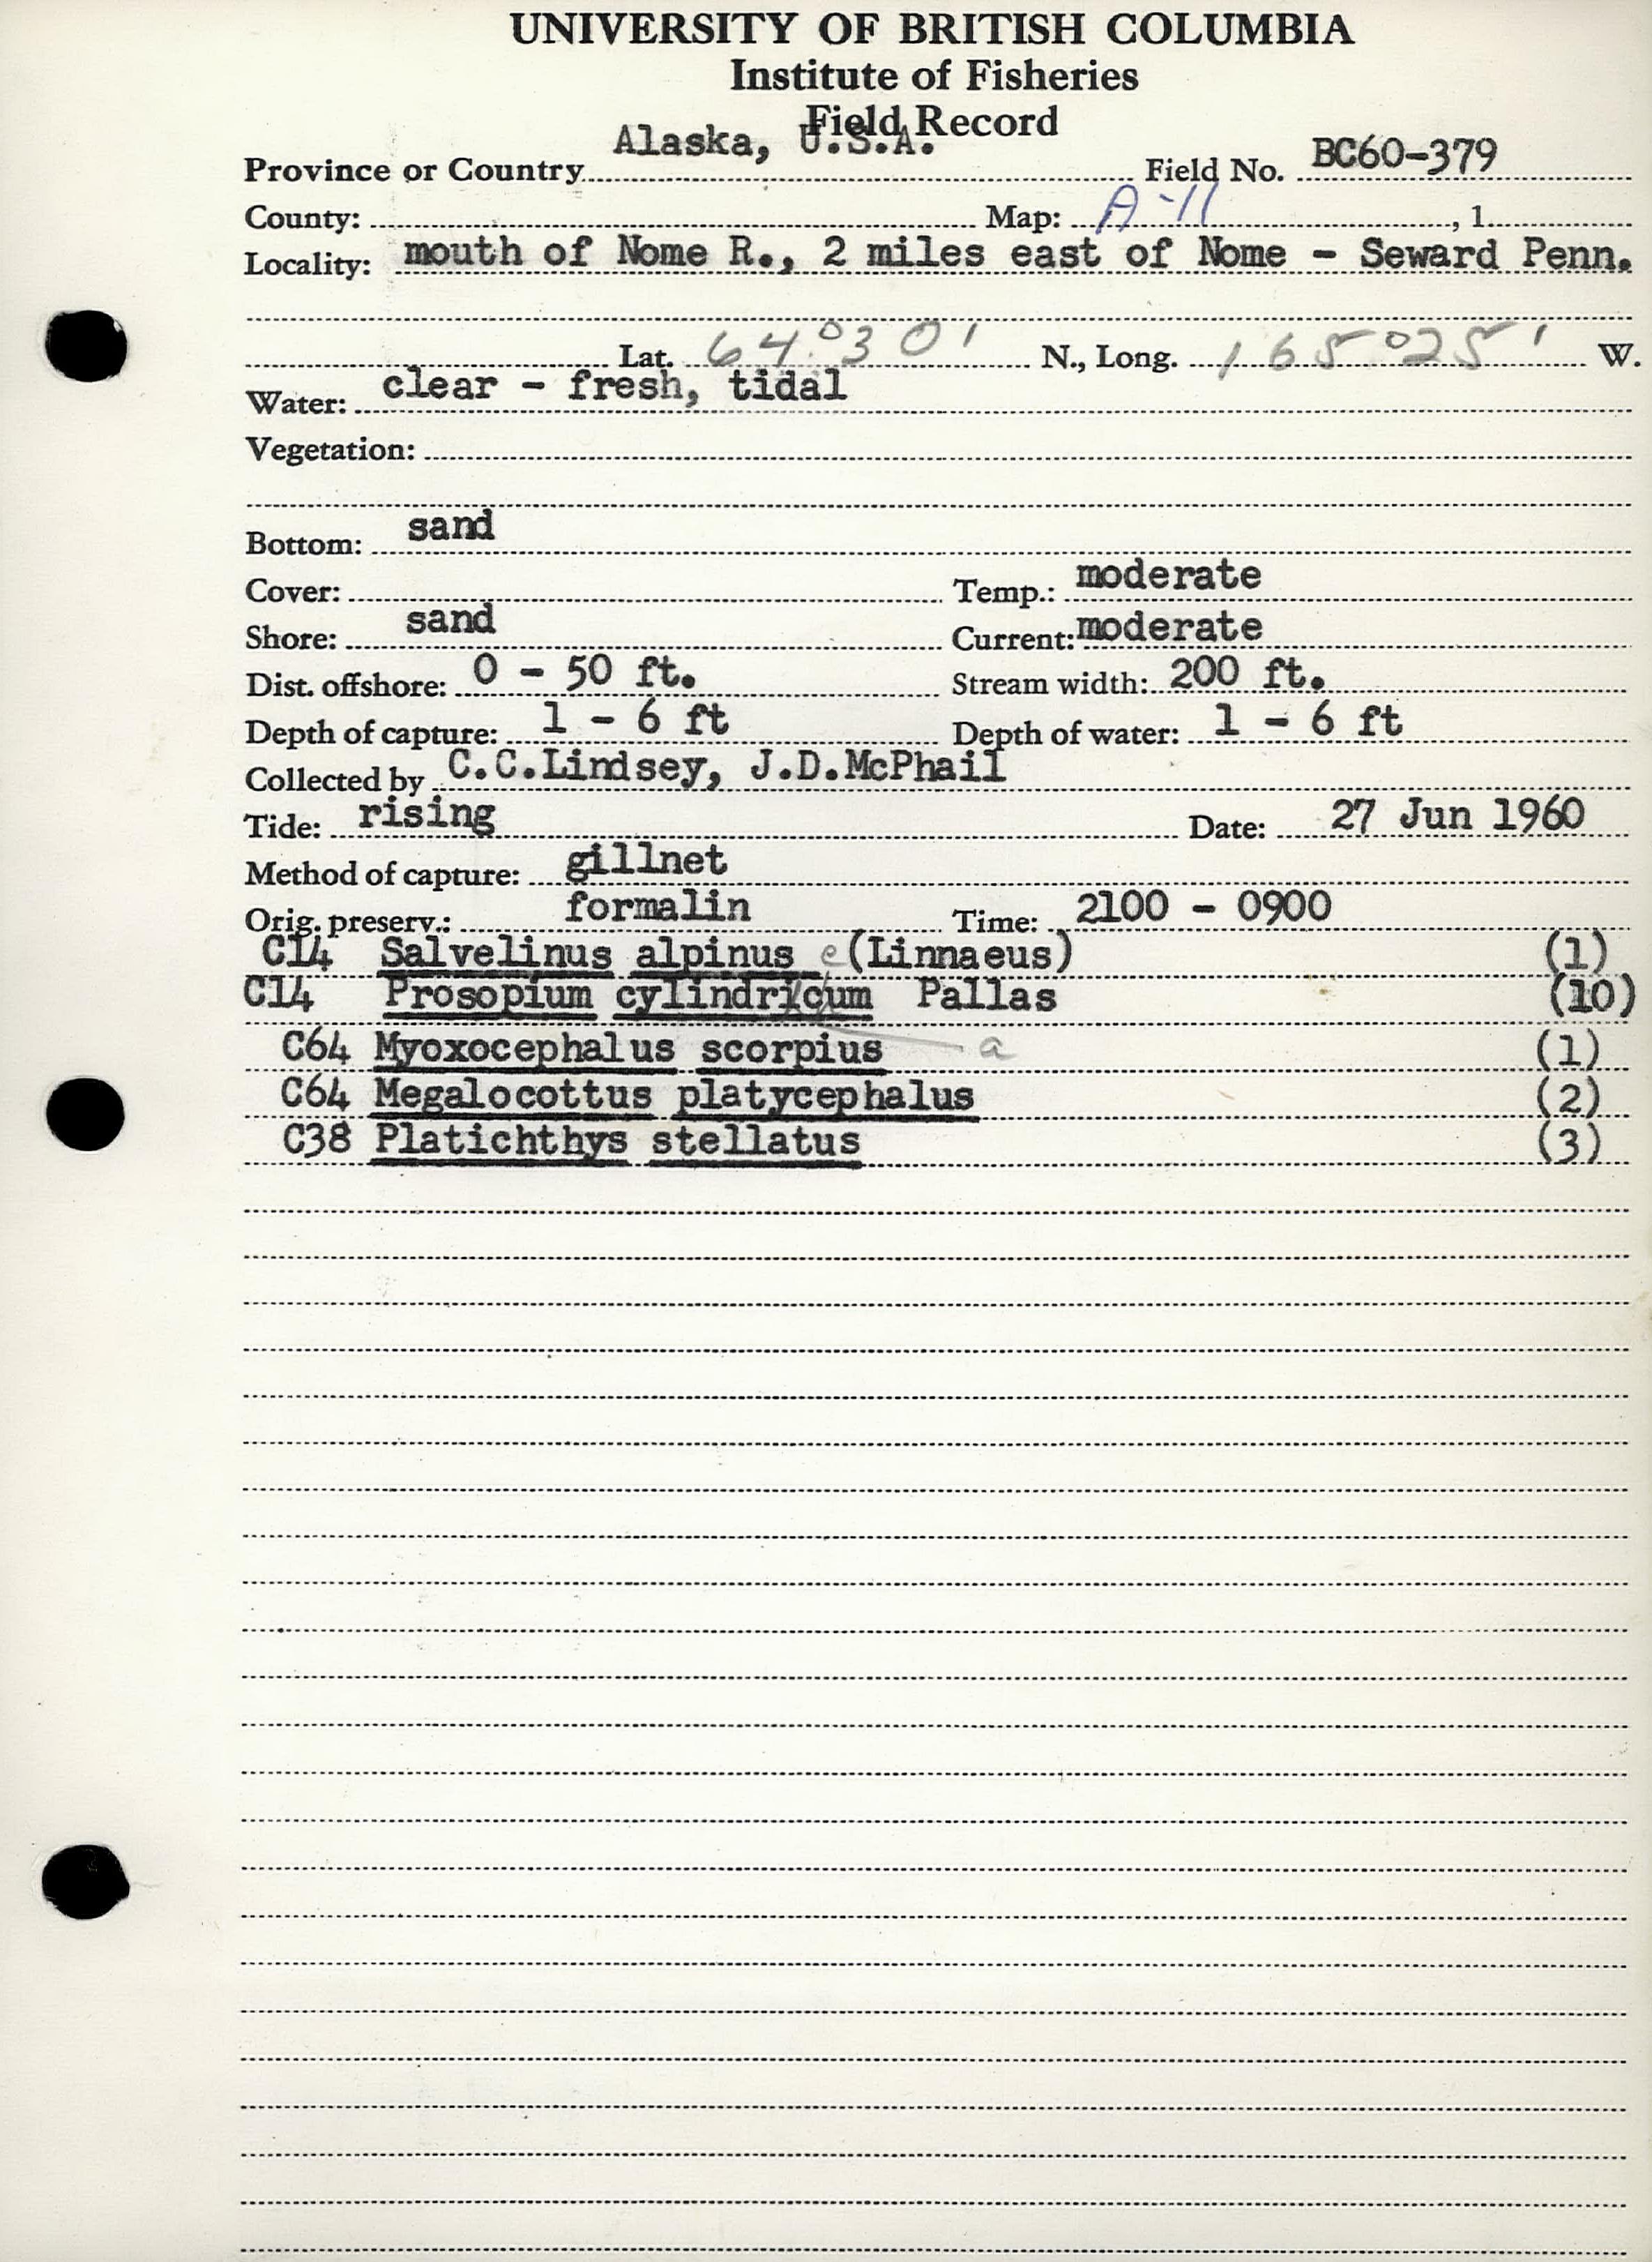 UNIVERSITY OF BRITISH COLUMBIA
Institute of Fisheries
Field Record
Province or Country Alaska, U.S.A. Field No. BC60-379
County: Map: A-11 , 1
Locality: mouth of Nome R., 2 miles east of Nome - Seward Penn.
Lat. 64°30' N., Long. 165°25' W.
Water: clear - fresh, tidal
Vegetation:
Bottom: sand
Cover: Temp.: moderate
Shore: sand Current: moderate
Dist. offshore: 0 - 50 ft. Stream width: 200 ft.
Depth of capture: 1 - 6 ft Depth of water: 1 - 6 ft
Collected by C.C.Lindsey, J.D.McPhail
Tide: rising Date: 27 Jun 1960
Method of capture: gillnet
Orig. preserv.: formalin Time: 2100 - 0900
C14 Salvelinus alpinus e (Linnaeus) (1)
C14 Prosopium cylindricum Pallas (10)
C64 Myoxocephalus scorpius a (1)
C64 Megalocottus platycephalus (2)
C38 Platichthys stellatus (3)